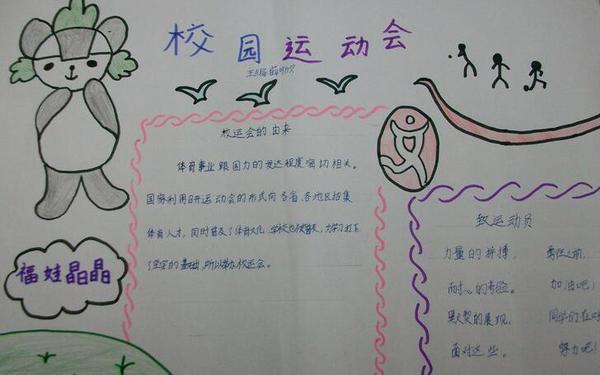 校园运动会
校运会的由来
体育事业跟国力的发达程度密切相关。
国家利用召开运动会的形式向各省、各地区招集
体育人才，同时普及了体育文化，学校也被普及，为学习打下
了坚实的基础，所以举办校运会。
福娃晶晶
致运动员
力量的拼搏，
耐心的考验。
默契的展现，
面对这些。
责任之前，
加油吧！
同学们在
努力吧！